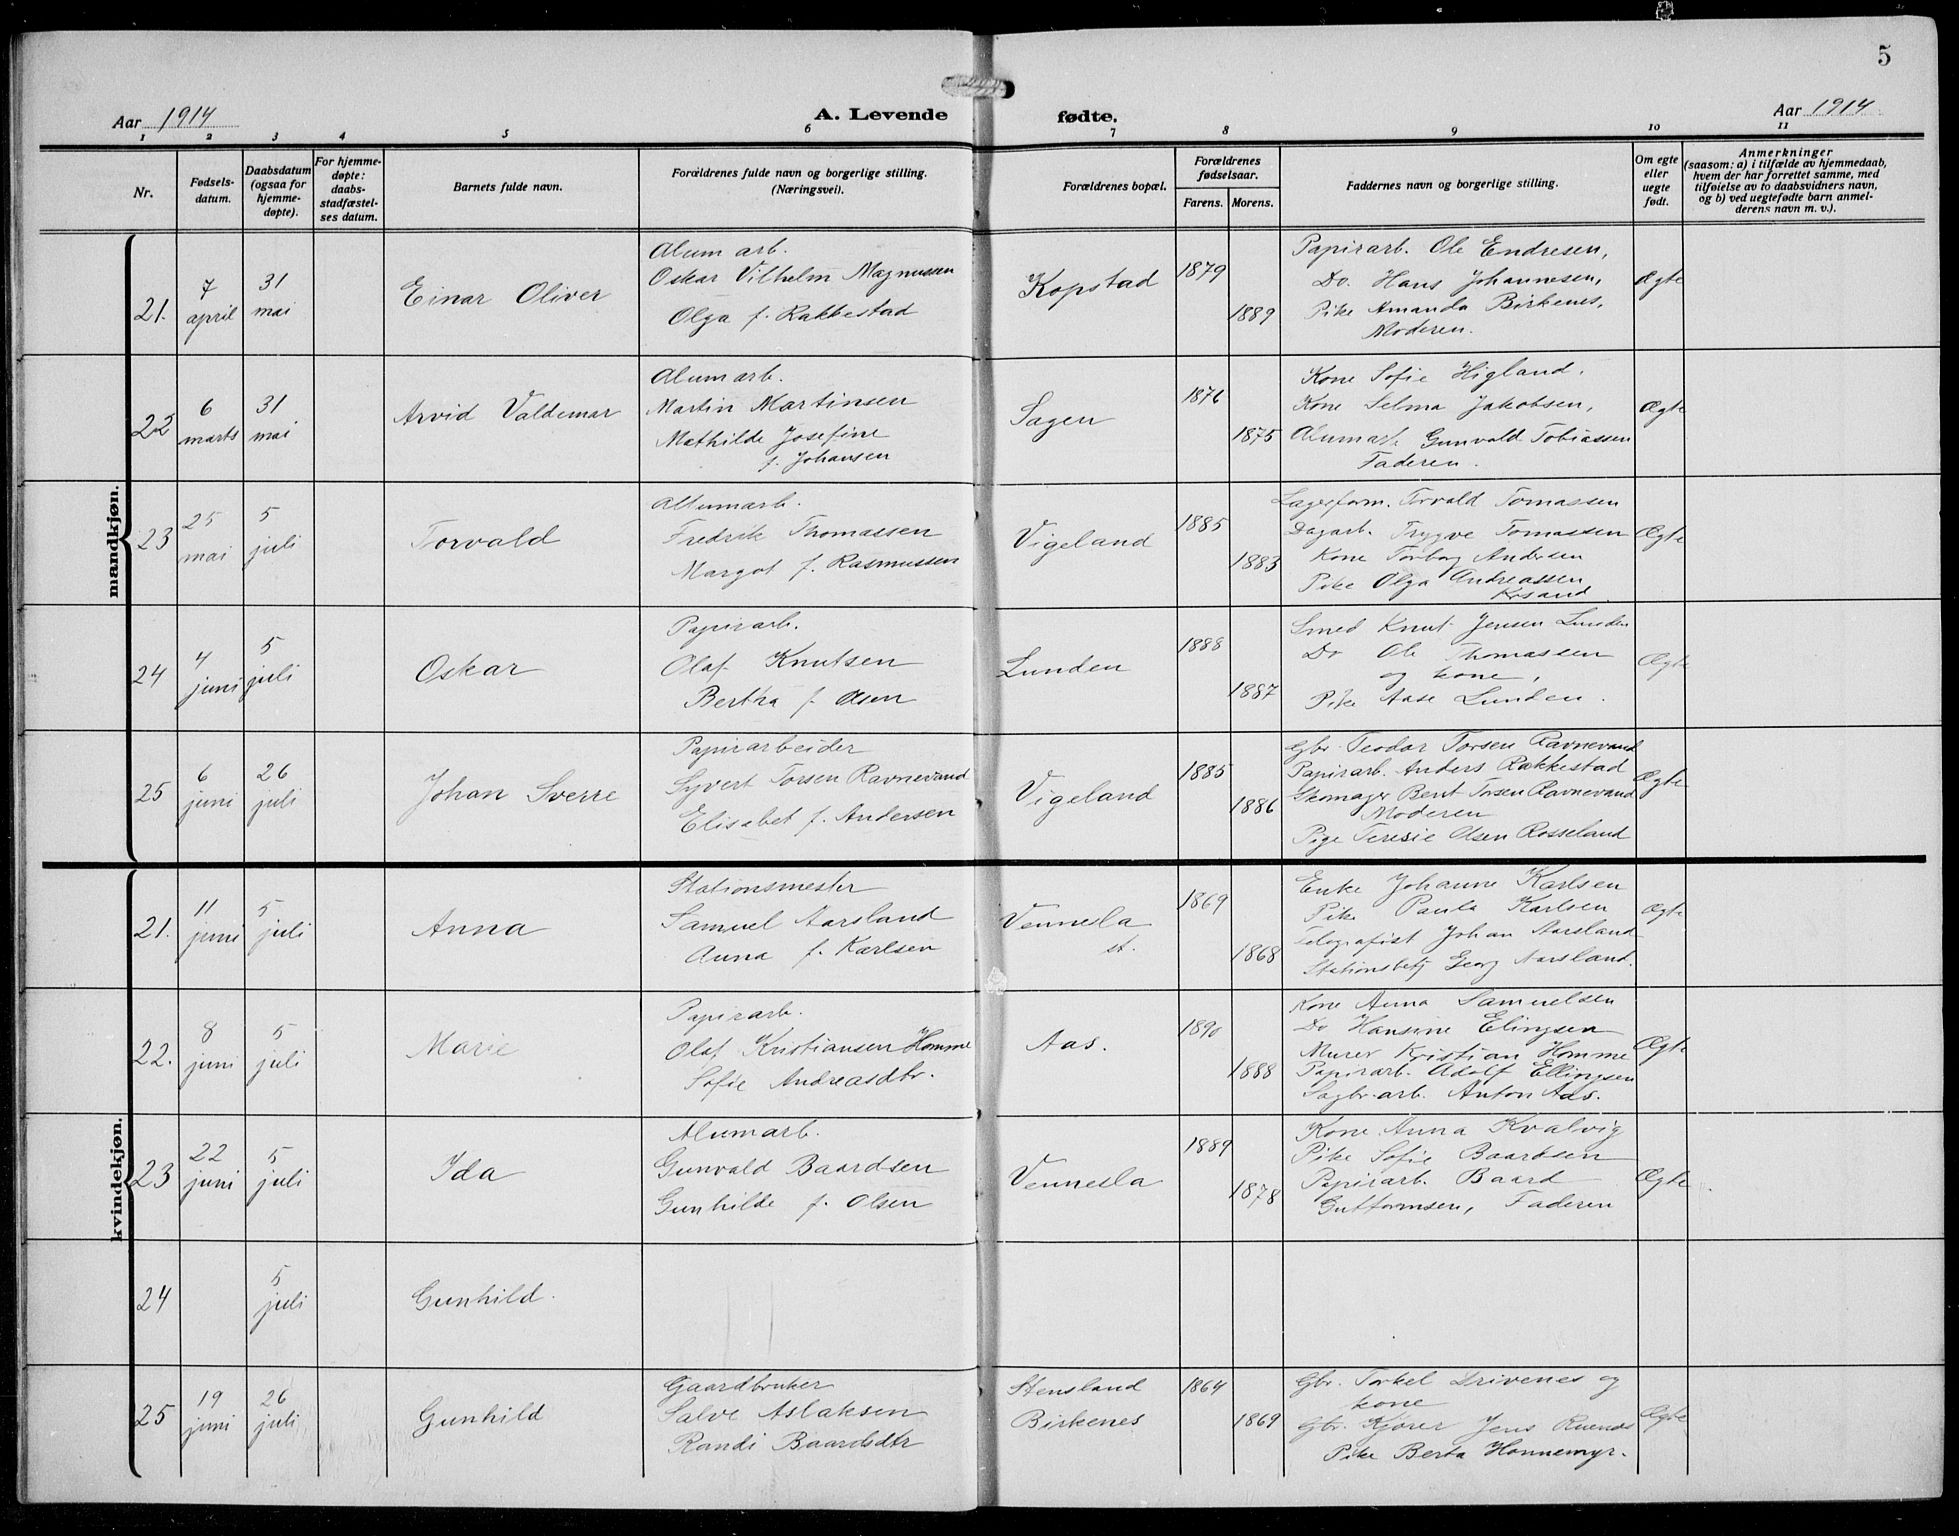 5
Aar 1914
A. Levende
fødte.
Aar 1914
1 2 3 4 5 6 7 8 9 10 11
Nr.
Fødsels-
datum.
Daabsdatum
(ogsaa for
hjemme-
døpte).
For hjemme-
døpte:
daabs-
stadfæstel-
ses datum.
Barnets fulde navn.
Forældrenes fulde navn og borgerlige stilling.
(Næringsvei).
Forældrenes bopæl.
Forældrenes
fødselsaar.
Farens. Morens.
Faddernes navn og borgerlige stilling.
Om egte
eller
uegte
født.
Anmerkninger
(saasom: a) i tilfælde av hjemmedaab,
hvem der har forrettet samme, med
tilføielse av to daabsvidners navn,
og b) ved uegtefødte barn anmel-
derens navn m. v.).
mandkjøn.
21.
7
april
31
mai
Einar Oliver
Alum arb.
Oskar Vilhelm Magnussen
Olga f. Rakkestad
Kopstad
1879
1889
Papirarb. Ole Endresen,
Do. Hans Johannesen,
Pike Amanda Birkenes,
Moderen.
Ægte
22
6
marts
31
mai
Arvid Valdemar
Alumarb.
Martin Martinsen
Mathilde Josefine
f. Johansen
Sagen
1876
1875
Kone Sofie Higland,
Kone Selma Jakobsen,
Alumarb. Gunvald Tobiassen
Faderen.
Ægte
23
25
mai
5
juli
Torvald
Altumarb.
Fredrik Thomassen
Margot f. Rasmussen
Vigeland
1885
1883
Lagerform. Torvald Tomassen
Dagarb. Trygve Tomassen
Kone Torborg Andersen
Pike Olga Andreassen,
Krsand
Ægte
24
4
juni
5
juli
Oskar
Papirarb.
Olaf Knutsen
Bertha f. Olsen
Lunden
1888
1887
Smed Knut Jensen Lunden
Do Ole Thomassen
og kone,
Pike Aase Lunden.
Ægte
25
6
juni
26
juli
Johan Sverre
Papirarbeider
Syvert Torsen Ravnevand
Elisabet f. Andersen
Vigeland
1885
1886
Gbr. Teodor Torsen Ravnevand
Papirarb. Anders Rakkestad
Skomager Bent Torsen Ravnevand
Moderen
Pige Teresie Olsen Rosseland
Ægte
kvindekjøn.
21.
11
juni
5
juli
Anna
Stationsmester
Samuel Aarsland
Anna f. Karlsen
Vennesla
st.
1869
1868
Enke Johanne Karlsen
Pike Paula Karlsen
Telegrafist Johan Aarsland
Stationsbetj Georg Aarsland.
Ægte
22.
8
juni
5
juli
Marie
Papirarb.
Olaf Kristiansen Homme
Sofie Andreasdtr.
Aas.
1890
1888
Kone Anna Samuelsen
Do Hansine Elingsen
Murer Kristian Homme
Papirarb. Adolf Ellingsen
Sagbr.arb. Anton Aas.
Ægte
23
22
juni
5
juli
Ida
Alumarb.
Gunvald Baardsen
Gunhilde f. Olsen
Vennesla
1889
1878
Kone Anna Kvalvig
Pike Sofie Baardsen
Papirarb. Baard
Guttormsen, Faderen
Ægte
24
5
juli
Gunhild.
25
19
juni
26
juli
Gunhild
Gaardbruker
Salve Aslaksen
Randi Baardsdtr
Stensland
Birkenes
1864
1869
Gbr. Torkel Drivenes og
kone
Gbr. Kjører Jens
Pike Berta Honnemyr.
Ægte